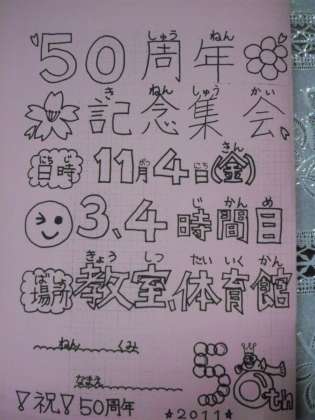 50周年
しゅう ねん
記念集会
き ねん しゅう かい
日時 11月4日(金)
にち じ がつ にち きん
3、4時間目
じ かん め
場所 教室、体育館
ば しょ きょう しつ たい いく かん
ねん くみ
なまえ
!祝!50周年
50th
★2011★